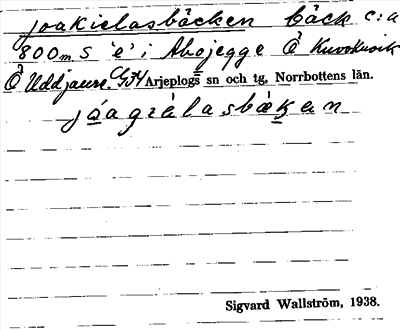 joakielasbäcken bäck c:a
800 m S 'e' i Ahojegge Ö Kuvokuoik
Ö Uddjaur. G34 Arjeplogs sn och tg, Norrbottens län.
jáagrèlasbäken
Sigvard Wallström, 1938.